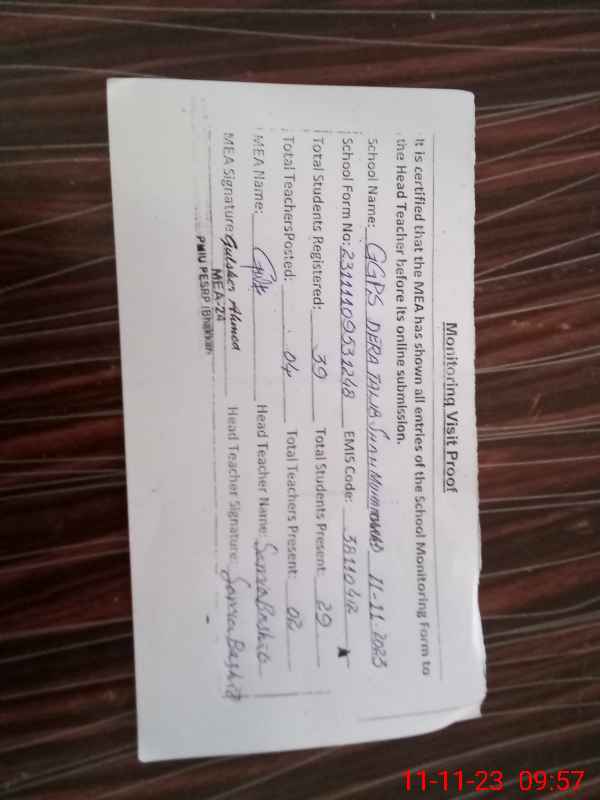 Monitoring Visit Proof
It is certified that the MEA has shown all entries of the School Monitoring Form to
the Head Teacher before its online submission.
School Name: GGPS DERA TALIB SHAH MOHAMMAD 11-11-2023
School Form No: 2311109531248 EMIS Code: 38110412
Total Students Registered: 39 Total Students Present: 29
Total TeachersPosted: 04 Total Teachers Present: 02
MEA Name: Head Teacher Name: Samia Bashir
MEA Signature: Gulsher Ahmed Head Teacher Signature: Samia Bashir
MEA-24
PMIU PESRP (Bhakkar)
11-11-23 09:57